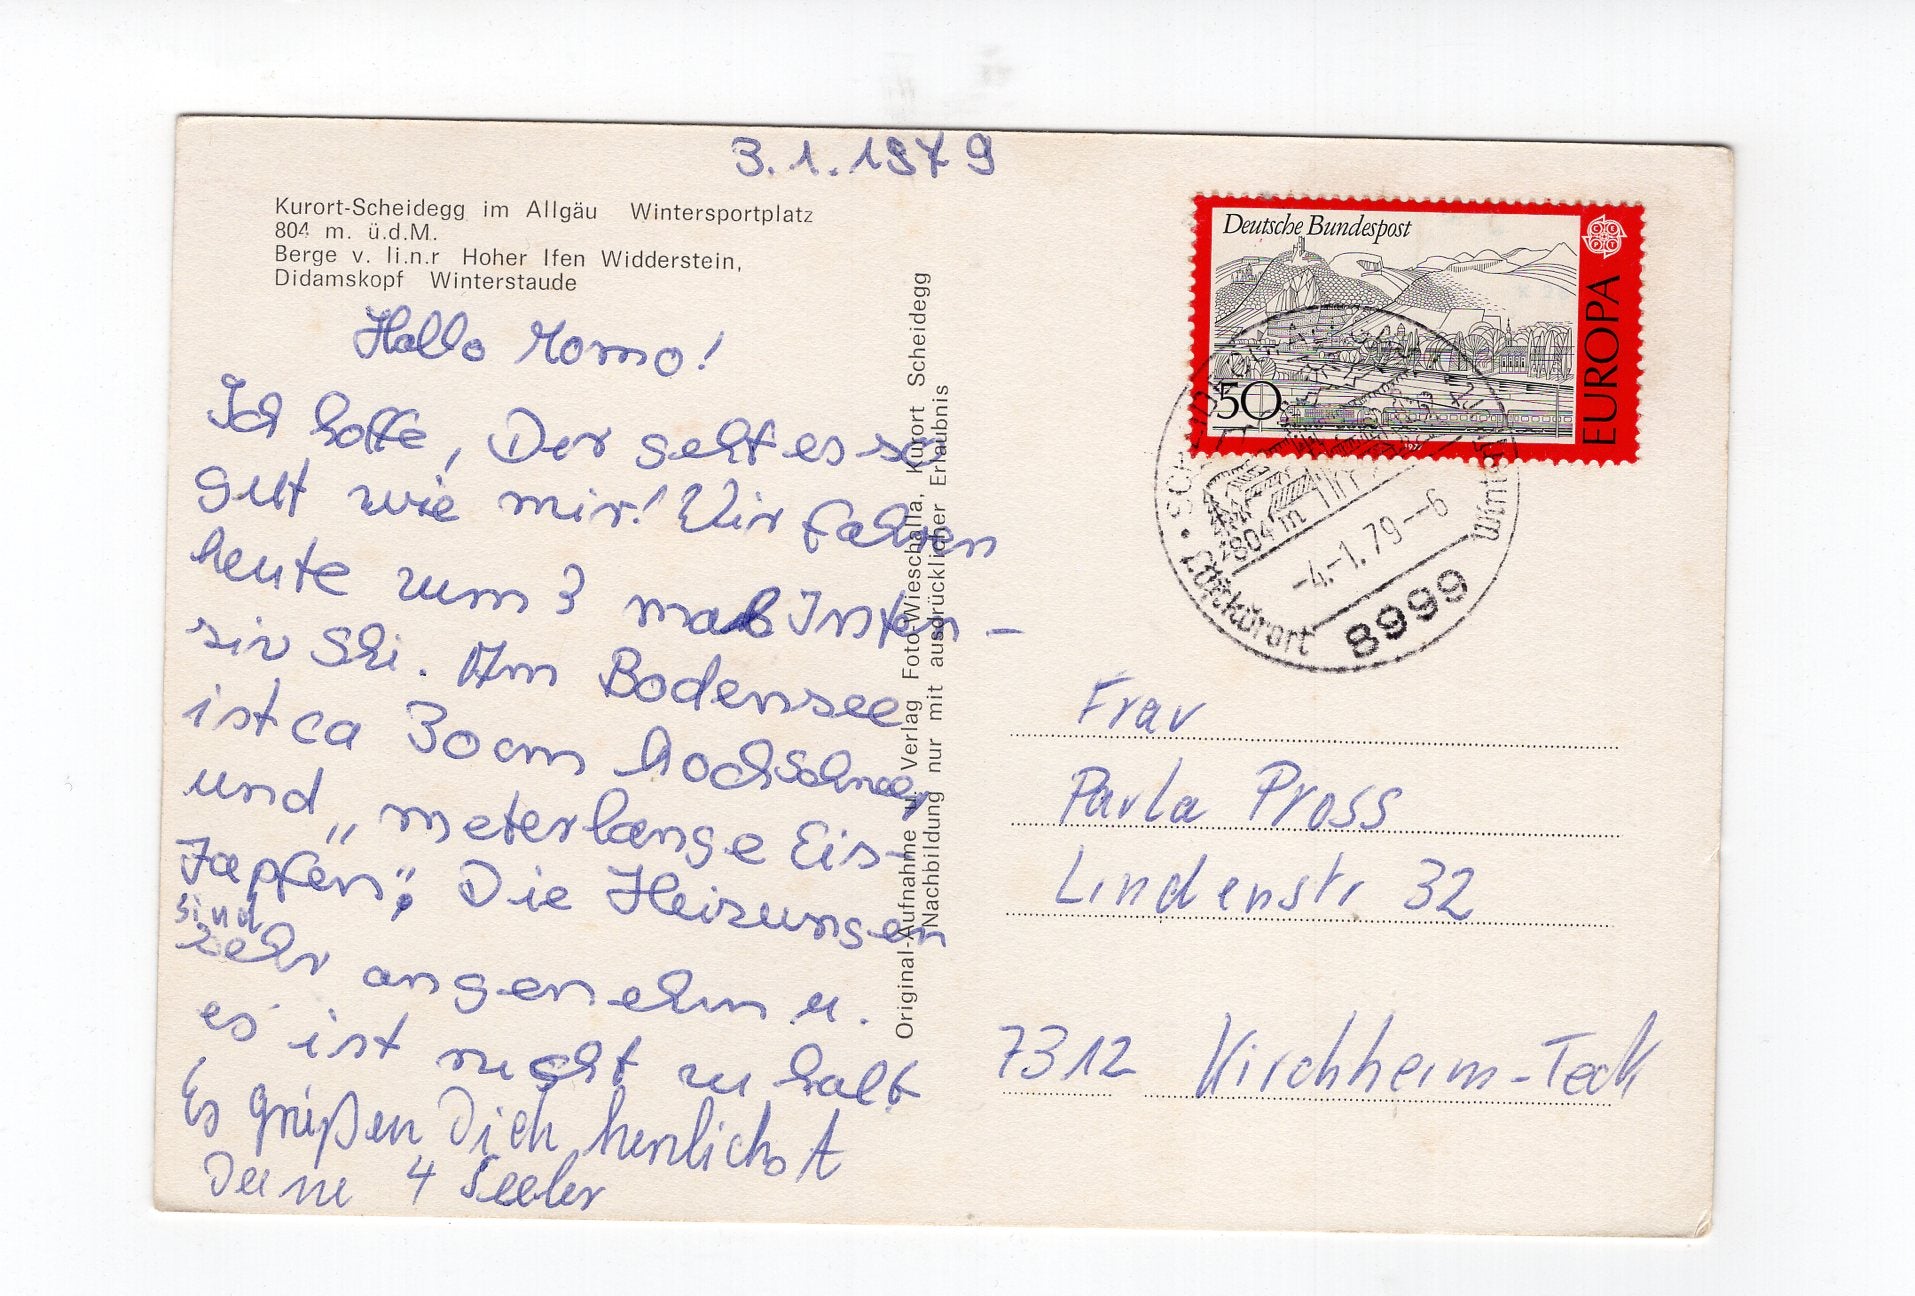 3.1.1979
Kurort-Scheidegg im Allgäu Wintersportplatz
804 m. ü.d.M.
Berge v. li.n.r Hoher Ifen Widderstein,
Didamskopf Winterstaude
Hallo Momo!
Ich hoffe, Dir geht es so
gut wie mir! Wir fahren
heute zum 3 mal Inten-
siv Ski. Am Bodensee
ist ca 30 cm hochschnee
und „meterlange Eis-
Zapfen". Die Heizungen
sind
sehr angenehm u.
es ist nicht zu kalt
Es grüßen Dich herzlichst
Deine 4 Seeler
Original-Aufnahme u. Verlag Foto Wieschalla, Kurort Scheidegg
Nachbildung nur mit ausdrücklicher Erlaubnis
Deutsche Bundespost
50
EUROPA
CEPT
1977
804 m
-4.-1.79--6
Luftkurort
8999
Frau
Paula Pross
Lindenstr 32
7312 Kirchheim-Teck